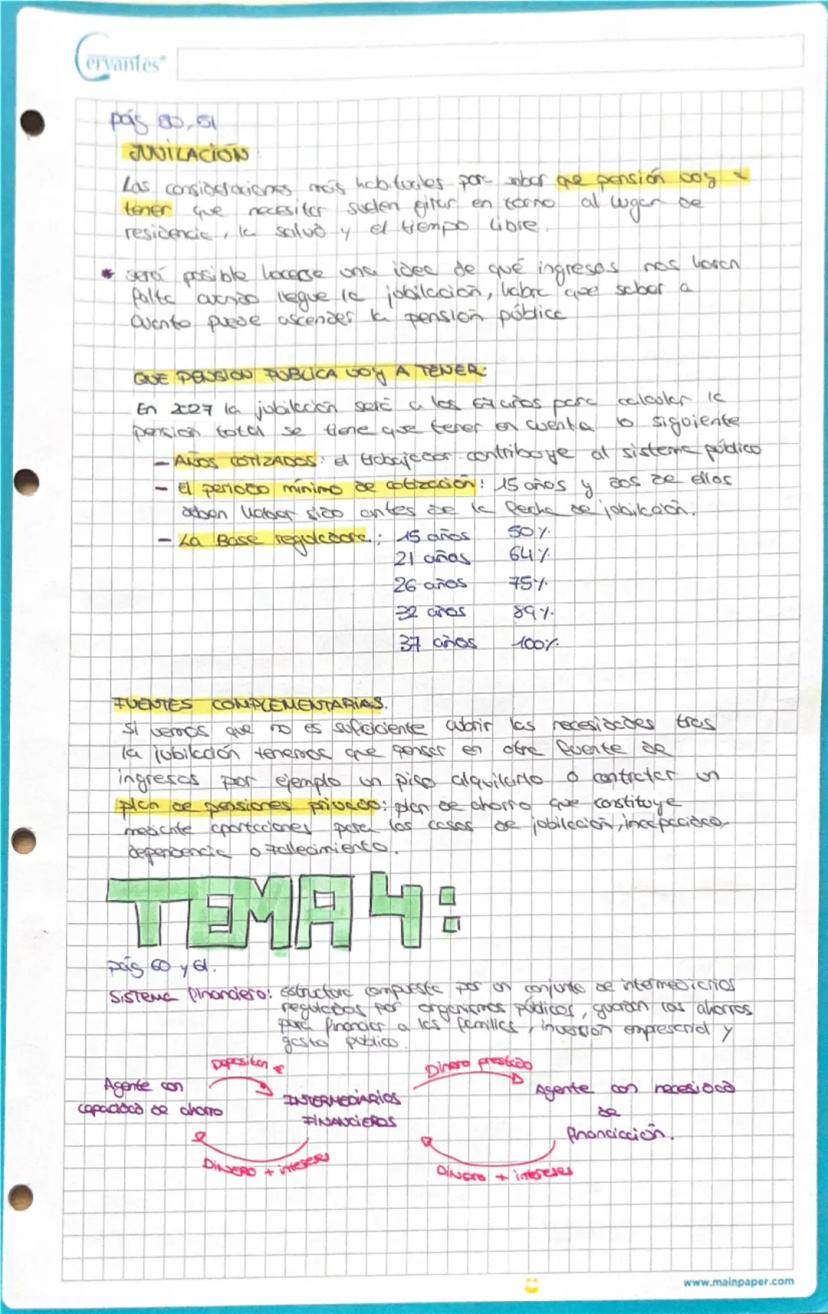 Cervantes
pág 50, 51
JUVILACIÓN
Las consideraciones más habituales por saber que pensión voy a
tener que necesitar suelen girar en torno al lugar de
residencia, la salud y el tiempo libre.
* será posible hacerse una idea de qué ingresos nos harán
falta cuando llegue la jobilación, habra que saber a
cuento puede ascender la pensión pública
QUE PENSION PUBLICA VOY A TENER:
En 2027 la jubilación será a los 67 años para calcular la
pensión total se tiene que tener en cuenta lo siguiente
- AÑOS COTIZADOS: el trabajador contribuye al sistema público
- El periodo mínimo de cotización: 15 años y dos de ellos
deben haber sido antes de la fecha de jobilación.
- La Base reguladora: 15 años 50%
21 años 64%
26 años 75%
32 años 89%
37 años 100%
FUENTES COMPLEMENTARIAS.
Si vemos que no es suficiente cubrir las necesidades tras
la jubilación tenemos que pensar en otra fuente de
ingresos por ejemplo un piso alquilarlo o contratar un
plan de pensiones privado: plan de ahorro que constituye
mediante aportaciones para los casos de jobilación, incapacidad
dependencia o fallecimiento.
TEMA 4:
pág 60 y 61.
Sistema financiero: estructura compuesta por un conjunto de intermediarios
regulados por organismos públicos, guardan los ahorros
para financiar a las familias, inversión empresarial y
gasto público.
Depositan Dinero prestado
Agente con INTERMEDIARIOS Agente con necesidad
capacidad de ahorro FINANCIEROS de
financiación.
DINERO + intereses DINERO + intereses
www.mainpaper.com